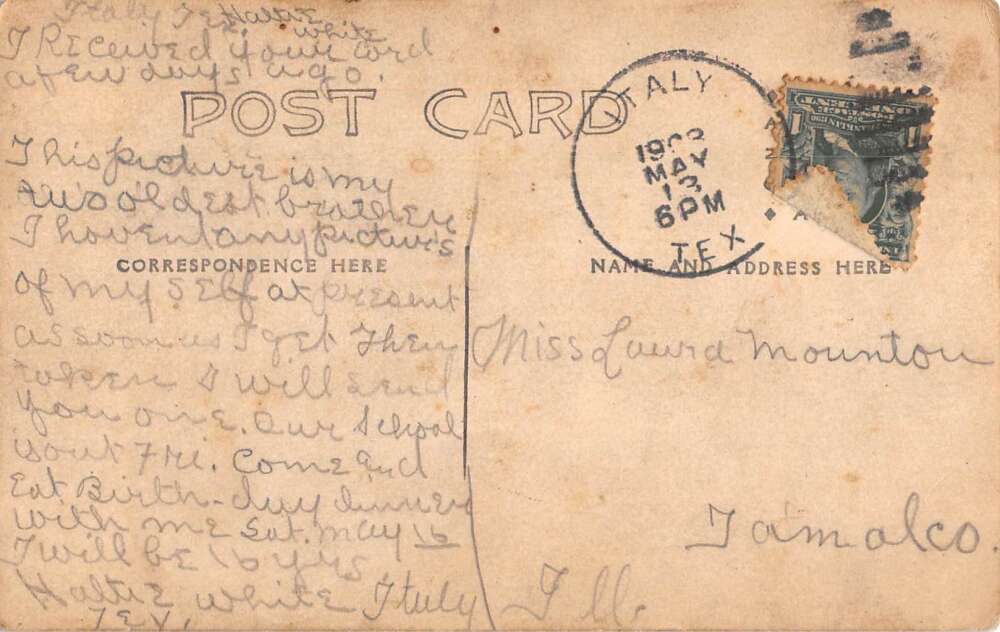 Italy Tex Hattie
White
I Received your cord
a few days ago.
POST CARD
This picture is my
two oldest brother
I hovent any picturs
CORRESPONDENCE HERE
of my self at present
as soon as I get them
token I will send
you one. Our School
is out Fri. Come and
Eat Birth-day dinner
with me Sat. May 16
I will be 16 yrs
Hattie White Italy
TEX.
ITALY
MAY
13
6PM
TEX
NAME AND ADDRESS HERE
Miss Laura Mounton
Tamalco.
Ill.